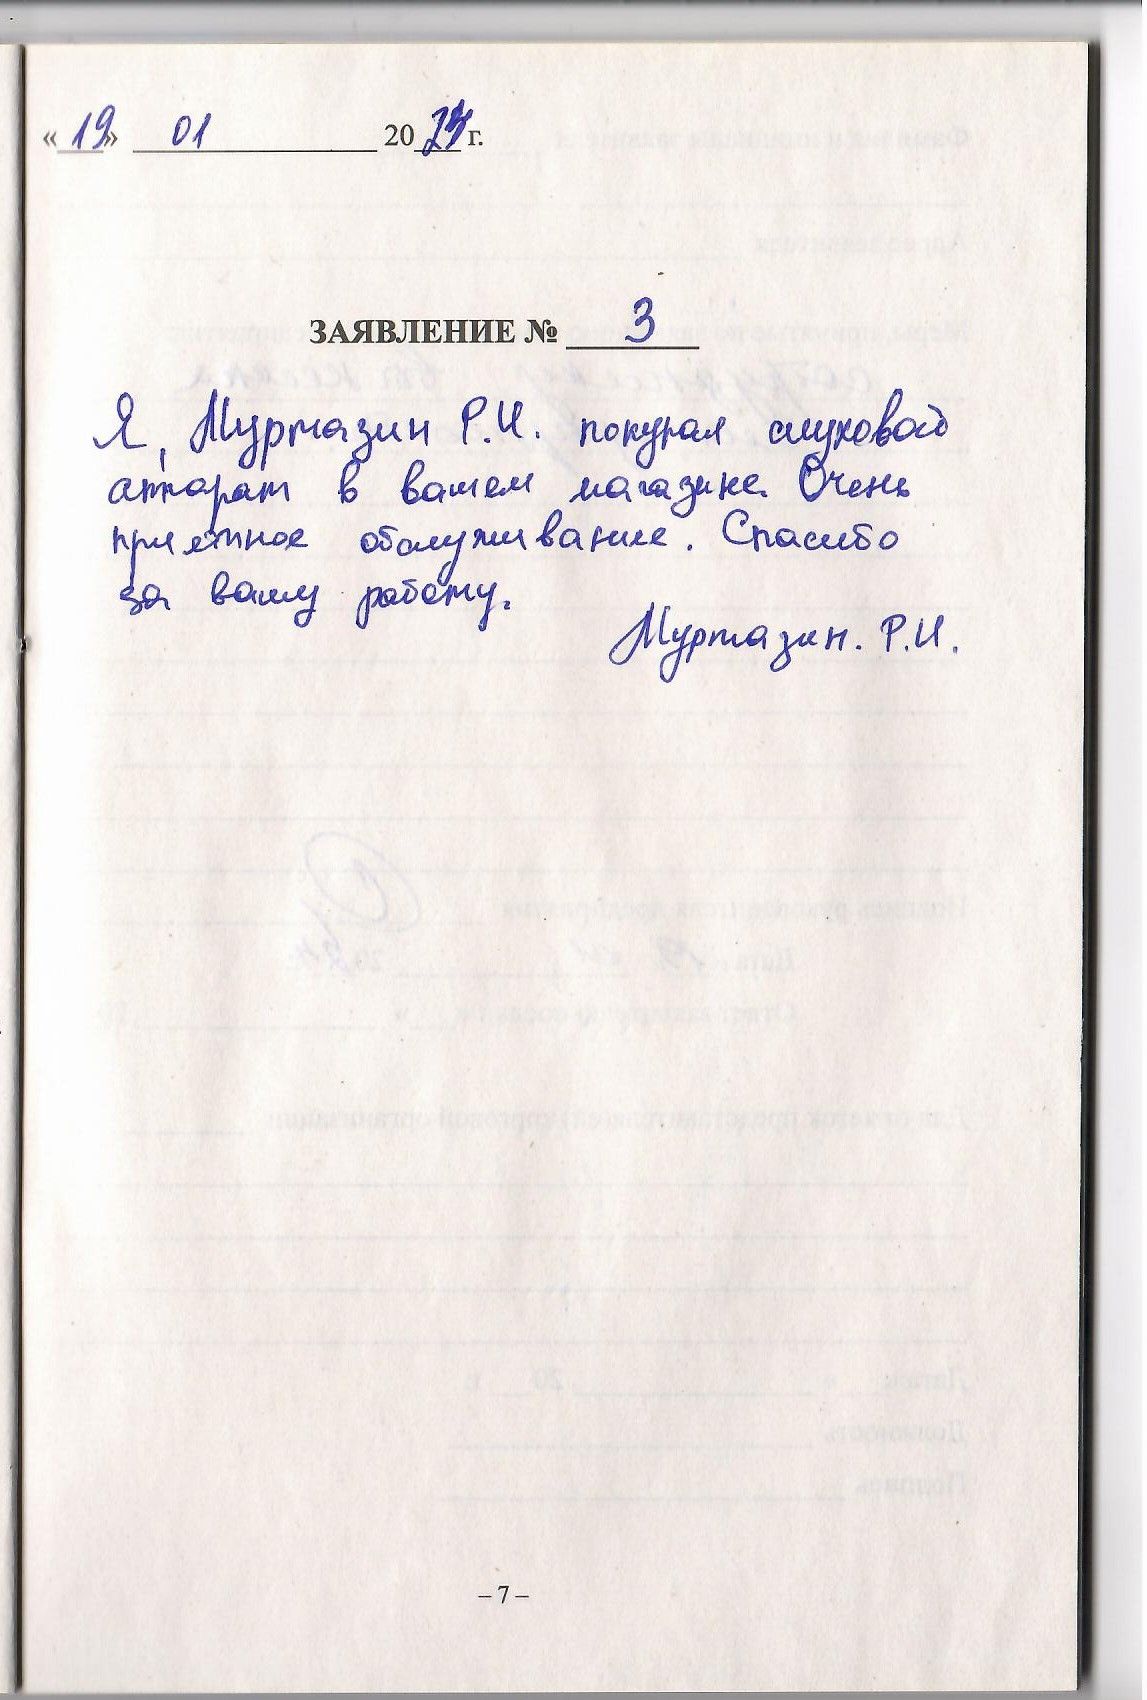 «19» 01 2024 г.
ЗАЯВЛЕНИЕ № 3
Я, Муртазин Р.И. покупал слуховой
аппарат в вашем магазине. Очень
приятное обслуживание. Спасибо
за вашу работу.
Муртазин. Р.И.
– 7 –